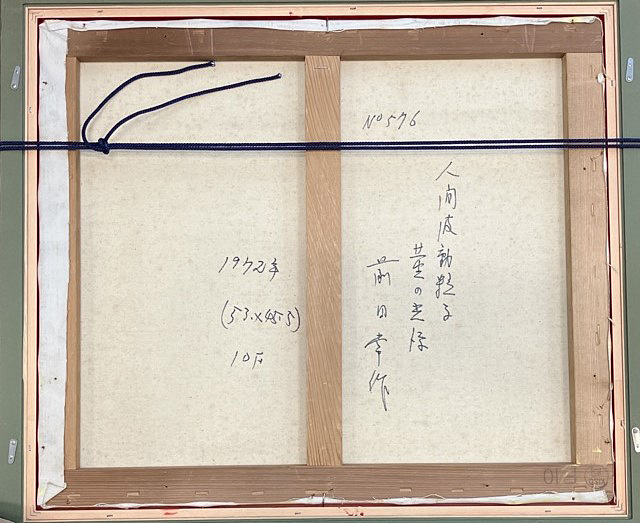 No 576
人間波動粒子
菫の光
前田常作
1972年
(53.×45.5)
10F